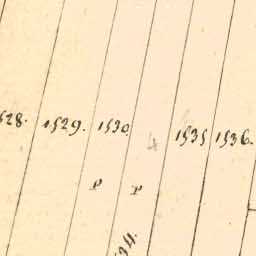 1529. 1530. 1535 1536.
P P